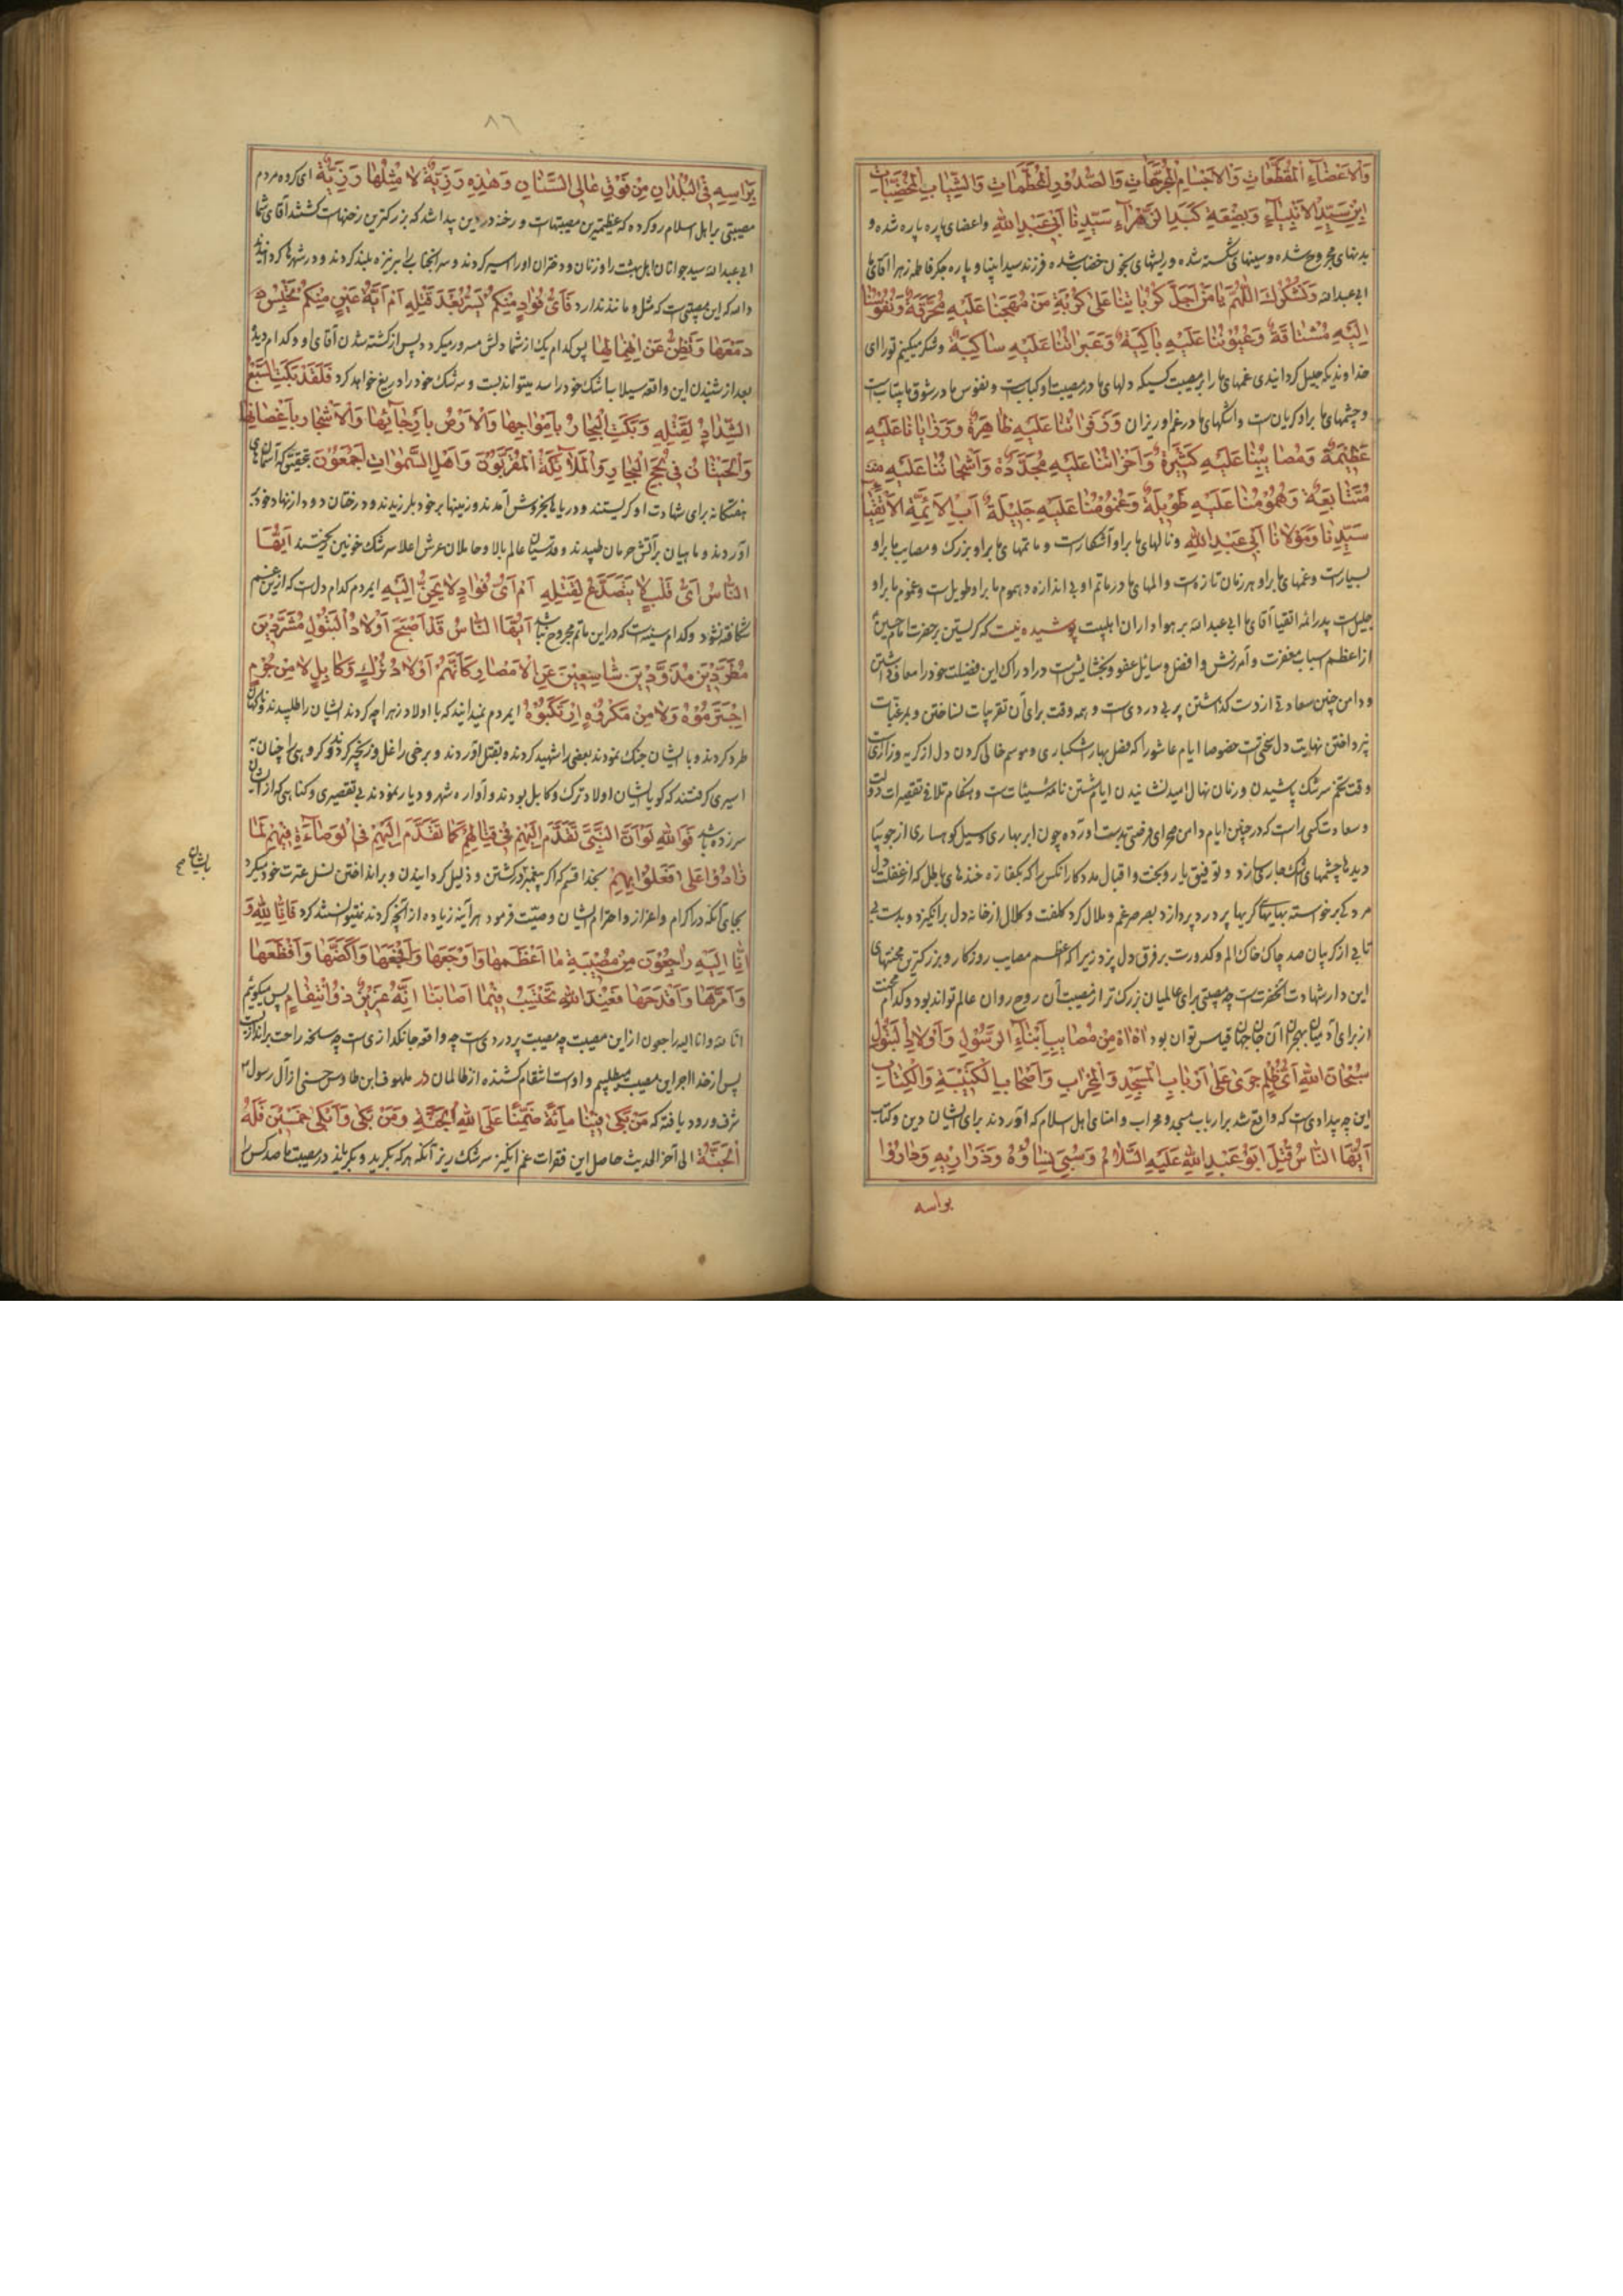 وَالاَعضَآءِ المُقَطَّعَاتِ وَالاَجسَامِ المُجَرَّحَاتِ وَالصُّدُورِ المُحَطَّمَاتِ وَالشَّيبَاتِ المُخَضَّبَاتِ
ابنِ سَيِّدِ الاَنبِيَآءِ وَبَضعَةِ كَبِدِ الزَّهرَآءِ سَيِّدِنَا اَبِي عَبدِ اللهِ واعضای پاره پاره شده و
بدنهای مجروح شده و سینهای شکسته شده و ریشهای بخون خضاب شده فرزند سید انبیا و پاره جگر فاطمه زهرا آقای ما
ابی عبدالله وَنَشكُرُكَ اللّهُمَّ يَا مَن اَجمَلَ كُرُبَاتِنَا عَلى كُربَةِ مَن مُهَجُنَا عَلَيهِ مُحَرَّقَةٌ وَنُفُوسُنَا
اِلَيهِ مُشتَاقَةٌ وَعُيُونُنَا عَلَيهِ بَاكِيَةٌ وَعَبَرَاتُنَا عَلَيهِ سَاكِبَةٌ وشکر میکنیم تو را ای
خداوندیکه جمیل گردانیدی غمهای ما را بر مصیبت کسیکه دلهای ما در مصیبت او کبابست و نفوس ما در شوق ما بیتابست
و چشمهای ما بر او گریان ست و اشکهای ما در غم او ریزان وَزَفَرَاتُنَا عَلَيهِ ظَاهِرَةٌ وَرَزَايَانَا عَلَيهِ
عَظِيمَةٌ وَمَصَائِبُنَا عَلَيهِ كَثِيرَةٌ وَاَحزَانُنَا عَلَيهِ مُجَدَّدَةٌ وَاَشجَانُنَا عَلَيهِ
مُتَتَابِعَةٌ وَهُمُومُنَا عَلَيهِ طَوِيلَةٌ وَغُمُومُنَا عَلَيهِ جَلِيلَةٌ اَبِ الاَئِمَّةِ الاَتقِيَا
سَيِّدِنَا وَمَولَانَا اَبِي عَبدِ اللهِ ونالهای ما بر او آشکارست و ماتمهای ما بر او بزرک و مصایب ما بر او
بسیارست و غمهای ما بر او هر زمان تازه ست و المهای ما در ماتم او بی اندازه و هموم ما بر او طویل ست و غموم ما بر او
جلیل ست پدر ائمه اتقیا آقای ما ابی عبدالله بر هواداران اهلبیت پوشیده نیست که گریستن بر حضرت امام حسین
از اعظم اسباب مغفرت و آمرزش و افضل وسائل عفو و بخشایش ست در ادراک این فضیلت خود را معاف داشتن
و دامن چنین سعادتی از دست گذاشتن پر بی دردی ست و همه وقت برای آن تقریبات نساختن و بدرغبات
نپرداختن نهایت دل سختی ست خصوصا ایام عاشورا که فصل بهار اشکباری و موسم خالی کردن دل از گریه و زاری ست
وقت تخم سرشک پاشیدن و زمان نهال امید نشانیدن ایام شستن نامه سیئات ست و هنگام تلافی تقصیرات دولت
و سعادت کسی راست که در چنین ایام دامن صحرای فرصتی بدست آورده چون ابر بهاری و سیل کوهساری از جویبا
دیدها چشمهای اشک جاری سازد و توفیق یار و بخت و اقبال مددکار آنکس را که بکفاره خندهای باطل که از غفلت دل
مرده کی برخواسته بهایهای گریها پر درد پردازد بصرصر غم و ملال گرد کلفت و کلال از خانه دل برانگیزد و بدست بی
تابی از گریبان صد چاک خاک الم و کدورت بر فرق دل ریزد زیرا که اعظم مصایب روزگار و بزرگترین محنتهای
این دار شهادت آنحضرتست چه مصیبتی برای عالمیان بزرگ تر از مصیبت آن روح روان عالم تواند بود و کدام محنت
از برای آدمیان بهجران آن جان جهان قیاس توان بود اٰه اٰه مِن مَصَايِبِ اَبنَآءِ الرَّسُولِ وَاَولَادِ البَتُولِ
سُبحَانَ اللهِ اَيُّ ظُلمٍ جَرَى عَلى اَربَابِ المَسجِدِ وَالمِحرَابِ وَاَصحَابِ الكَتِيبَةِ وَالكِتَابِ
این چه بیدادی ست که واقع شد بر ارباب مسجد و محراب و امنای اهل اسلام که آوردند برای ایشان دین و کتاب
اَيُّهَا النَّاسُ قُتِلَ اَبُو عَبدِ اللهِ عَلَيهِ السَّلَامُ وَسُبِيَ نِسَاؤُهُ وَذَرَارِيهِ وَدَارُوا
براسه
٨٦
بِرَاسِهِ فِي البُلدَانِ مِن فَوقِ عَالِي السِّنَانِ وَهٰذِهِ رَزِيَّةٌ لَا مِثلُهَا رَزِيَّةٌ ای گروه مردم
مصیبتی بر اهل اسلام رو کرده که عظیمترین مصیبتهاست و رخنه در دین پیدا شد که بزرگترین رخنهاست کشتند آقای شما
ابی عبدالله سید جوانان اهل بهشت را و زنان و دختران او را اسیر کردند و سر آنجناب را بر نیزه بلند کردند و در شهرها گردانیدند
والله که این مصیبتی ست که مثل و مانند ندارد فَاَيُّ فُؤَادٍ مِنكُم يَسُرُّ بَعدَ قَتلِهِ اَم اَيَّةُ عَينٍ مِنكُم تَحبِسُ
دَمعَهَا وَتَضِنُّ عَنِ انهِمَالِهَا پس کدام یک از شما دلش مسرور میگردد پس از کشته شدن آقای او و کدام دیده
بعد از شنیدن این واقعه سیلاب اشک خود را سد میتواند بست و سرشک خود را دریغ خواهد کرد فَلَقَد بَكَتِ السَّبعُ
الشِّدَادُ لِقَتلِهِ وَبَكَتِ البِحَارُ بِاَموَاجِهَا وَالاَرضُ بِاَرجَآئِهَا وَالاَشجَارُ بِاَغصَانِهَا
وَالحِيتَانُ فِي لُجَجِ البِحَارِ وَالمَلَآئِكَةُ المُقَرَّبُونَ وَاَهلُ السَّمٰوَاتِ اَجمَعُونَ بتحقیق که آسمانهای
هفتگانه برای شهادت او گریستند و دریاها بخروش آمدند و زمینها بر خود بلرزیدند و درختان دود از نهاد خود بر
آوردند و ماهیان بر آتش حرمان طپیدند و قدسیان عالم بالا و حاملان عرش اعلا سرشک خونین ریختند اَيُّهَا
النَّاسُ اَيُّ قَلبٍ لَا يَتَصَدَّعُ لِقَتلِهِ اَم اَيُّ فُؤَادٍ لَا يَحِنُّ اِلَيهِ ایمردم کدام دل ست که از این غم
شکافته نشود و کدام سینه ست که در این ماتم مجروح نباشد اَيُّهَا النَّاسُ قَد اَصبَحَ اَولَادُ البَتُولِ مُشَرَّدِينَ
مُطَرَّدِينَ مَذُوَّدِينَ شَاسِعِينَ عَنِ الاَمصَارِ كَاَنَّهُم اَولَادُ تُركٍ وَكَابِلٍ لَا مِن جُرمٍ
اجتَرَمُوهُ وَلَا مِن مَكرُوهٍ ارتَكَبُوهُ ایمردم نمیدانید که با اولاد زهرا چه کردند ایشان را طلبیدند و ناگهان
طرد کردند و با ایشان جنگ نمودند بعضی را شهید کردند و بقتل آوردند و برخی را غل و زنجیر کردند و گروهی را چنان به
اسیری گرفتند که گویا ایشان اولاد ترک و کابل بودند و آواره شهر و دیار نمودند بی تقصیری و گناهی که از ایشان
سر زده باشد فَوَاللهِ لَو اَنَّ النَّبِيَّ تَقَدَّمَ اِلَيهِم فِي قِتَالِهِم كَمَا تَقَدَّمَ اِلَيهِم فِي الوَصَآءَةِ فِيهِم لَمَا
زَادُوا عَلى مَا فَعَلُوا بِهِم بخدا قسم که اگر پیغمبر در کشتن و ذلیل گردانیدن و برانداختن نسل عترت خود میکرد
باایشان صح
بجای آنکه در اکرام و اعزاز و احترام ایشان وصیّت فرمود هر آینه زیاده از آنچه کردند نمیتوانستند کرد فَاِنَّا لِلّهِ وَ
اِنَّا اِلَيهِ رَاجِعُونَ مِن مُصِيبَةٍ مَا اَعظَمَهَا وَاَوجَعَهَا وَاَفجَعَهَا وَاَكَضَّهَا وَاَفظَعَهَا
وَاَمَرَّهَا وَاَفدَحَهَا فَعِندَ اللهِ نَحتَسِبُ فِيمَا اَصَابَنَا اِنَّهُ عَزِيزٌ ذُو انتِقَامٍ پس میگویم
انا لله وانا الیه راجعون از این مصیبت چه مصیبت پر دردی ست چه واقعه جانگدازی ست چه سانحه راحت براندازیست
پس از خدا اجر این مصیبت میطلبیم و اوست انتقام کشنده از ظالمان در ملهوف ابن طاوس حسنی از آل رسول
شرف ورود یافته که مَن بَكى فِينَا مِائَةً ضَمِنَّا عَلَى اللهِ الجَنَّةَ وَمَن بَكى وَاَبكى خَمسِينَ فَلَهُ
الجَنَّةُ الی آخر الحدیث حاصل این فقرات غم انگیز سرشک ریز آنکه هر که بگرید و بگریاند در مصیبت ما صد کس را